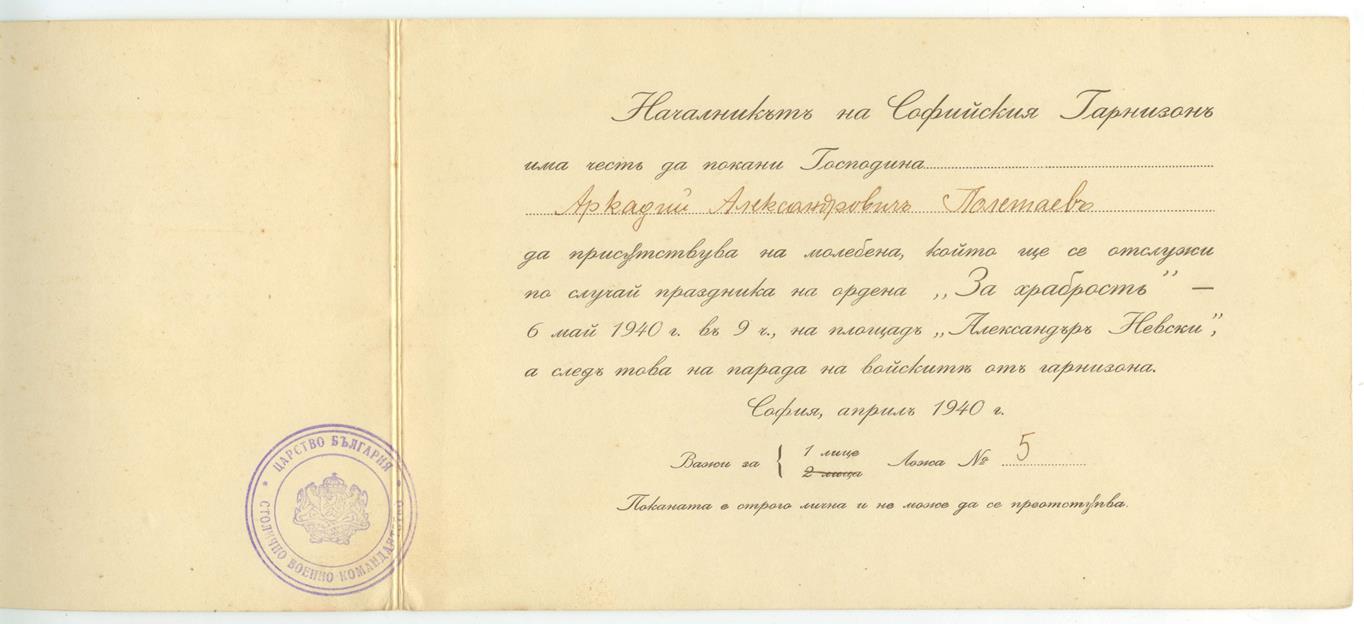 Началникътъ на Софийския Гарнизонъ
има честь да покани Господина
Аркадий Александровичъ Полетаевъ
да присѫтствува на молебена, който ще се отслужи
по случай праздника на ордена „За храбрость” —
6 май 1940 г. въ 9 ч., на площадъ „Александъръ Невски”,
а следъ това на парада на войскитѣ отъ гарнизона.
София, априлъ 1940 г.
Важи за { 1 лице
2 лица
Ложа № 5
Поканата е строго лична и не може да се преотстѫпва.
ЦАРСТВО БЪЛГАРИЯ
СТОЛИЧНО ВОЕННО КОМАНДАНТСТВО